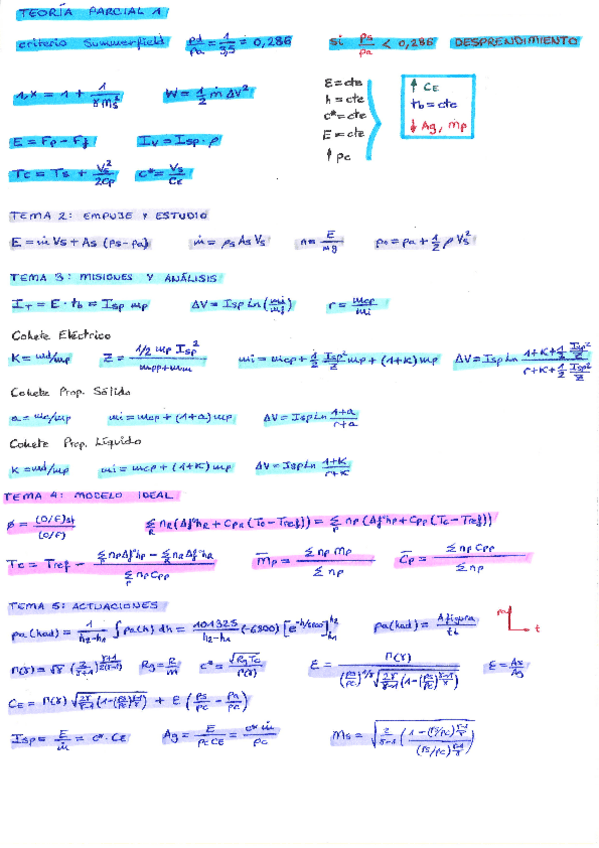 TEORÍA PARCIAL 1
criterio Summerfield pd/pa = 1/3,5 = 0,286 si ps/pa < 0,286 DESPRENDIMIENTO
1,x = 1 + 1/(γMs²) W = 1/2 ṁ ΔV²
ε = cte
h = cte
c* = cte
E = cte
↑ pc
↑ CE
tb = cte
↓ Ag, ṁp
E = Fp - Ff IV = Isp · ρ
Tc = Ts + Vs²/2cp c* = Vs/CE
TEMA 2: EMPUJE Y ESTUDIO
E = ṁ Vs + As (ps - pa) ṁ = ρs As Vs n = E/mg po = pa + 1/2 ρ Vs²
TEMA 3: MISIONES Y ANÁLISIS
IT = E · tb = Isp mp ΔV = Isp Ln (mi/mf) r = mcp/mi
Cohete Eléctrico
K = md/mp Z = (1/2 mp Isp²)/(mpp+mm) mi = mcp + 1/2 Isp²/Z mp + (1+K) mp ΔV = Isp Ln (1+K+1/2 Isp²/Z)/(r+K+1/2 Isp²/Z)
Cohete Prop. Sólido
a = mc/mp mi = mcp + (1+a) mp ΔV = Isp Ln (1+a)/(r+a)
Cohete Prop. Líquido
K = md/mp mi = mcp + (1+K) mp ΔV = Isp Ln (1+K)/(r+K)
TEMA 4: MODELO IDEAL
φ = (O/F)st/(O/F) ΣR nR (Δf°hR + CpR (Tc - Tref)) = ΣP nP (Δf°hP + CpP (Tc - Tref))
Tc = Tref - (ΣP nP Δf°hP - ΣR nR Δf°hR)/(ΣP nP CpP) M̄p = Σ np Mp/Σ np C̄p = Σ np Cpp/Σ np
TEMA 5: ACTUACIONES
pa(had) = 1/(h2-h1) ∫ pa(h) dh = 101325/(h2-h1) (-6800) [e^(-h/6800)]h1^h2 pa(had) = A figura/tb pa t
Γ(γ) = √γ (2/(γ+1))^((γ+1)/(2(γ-1))) Rg = R/m c* = √(Rg Tc)/Γ(γ) ε = Γ(γ)/((ps/pc)^(1/γ) √(2γ/(γ-1) (1-(ps/pc)^((γ-1)/γ)))) ε = As/Ag
CE = Γ(γ) √(2γ/(γ-1) (1-(ps/pc)^((γ-1)/γ))) + ε (ps/pc - pa/pc)
Isp = E/ṁ = c* · CE Ag = E/(pc CE) = c* ṁ/pc Ms = √(2/(γ-1) ((1-(ps/pc)^((γ-1)/γ))/((ps/pc)^((γ-1)/γ))))